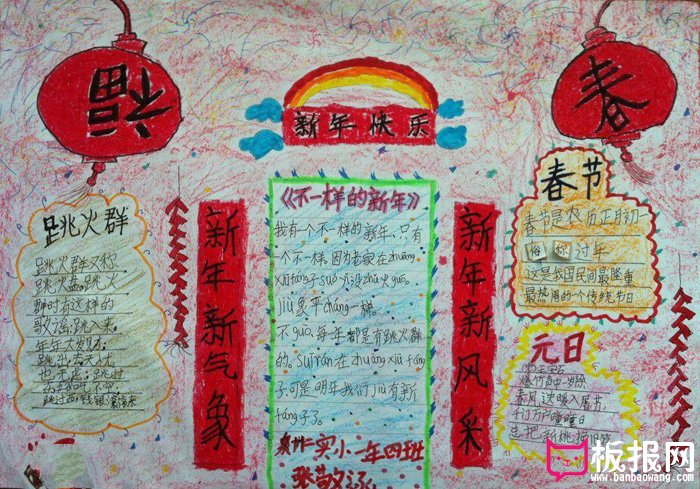 福
春
新年快乐
跳火群
跳火群又称
跳火盘。跳火
群时有这样的
歌谣:跳入来,
年年大发财。
跳出去,无忧
也无虑;跳过
跳过西,钱银
新年新气象
《不一样的新年》
我有个不一样的新年,只有
个不一样。因为老家在zhuāng
xiū fáng子suǒ yǐ没zhǔ火guō。
jiù象平cháng一样。
不guò每年都是有跳火群
的。Suī rán在zhuāng xiū fáng
子,可是明年我们jiù有新
fáng子了。
实小一年四班
新年新风采
春节
春节是农历正月初
过年
这是我国民间最隆重
最热闹的一个传统节日
元日
爆竹声中一岁除
春风送暖入屠苏,
千门万户曈曈日
总把新桃换旧符
板报网
www.banbaowang.com